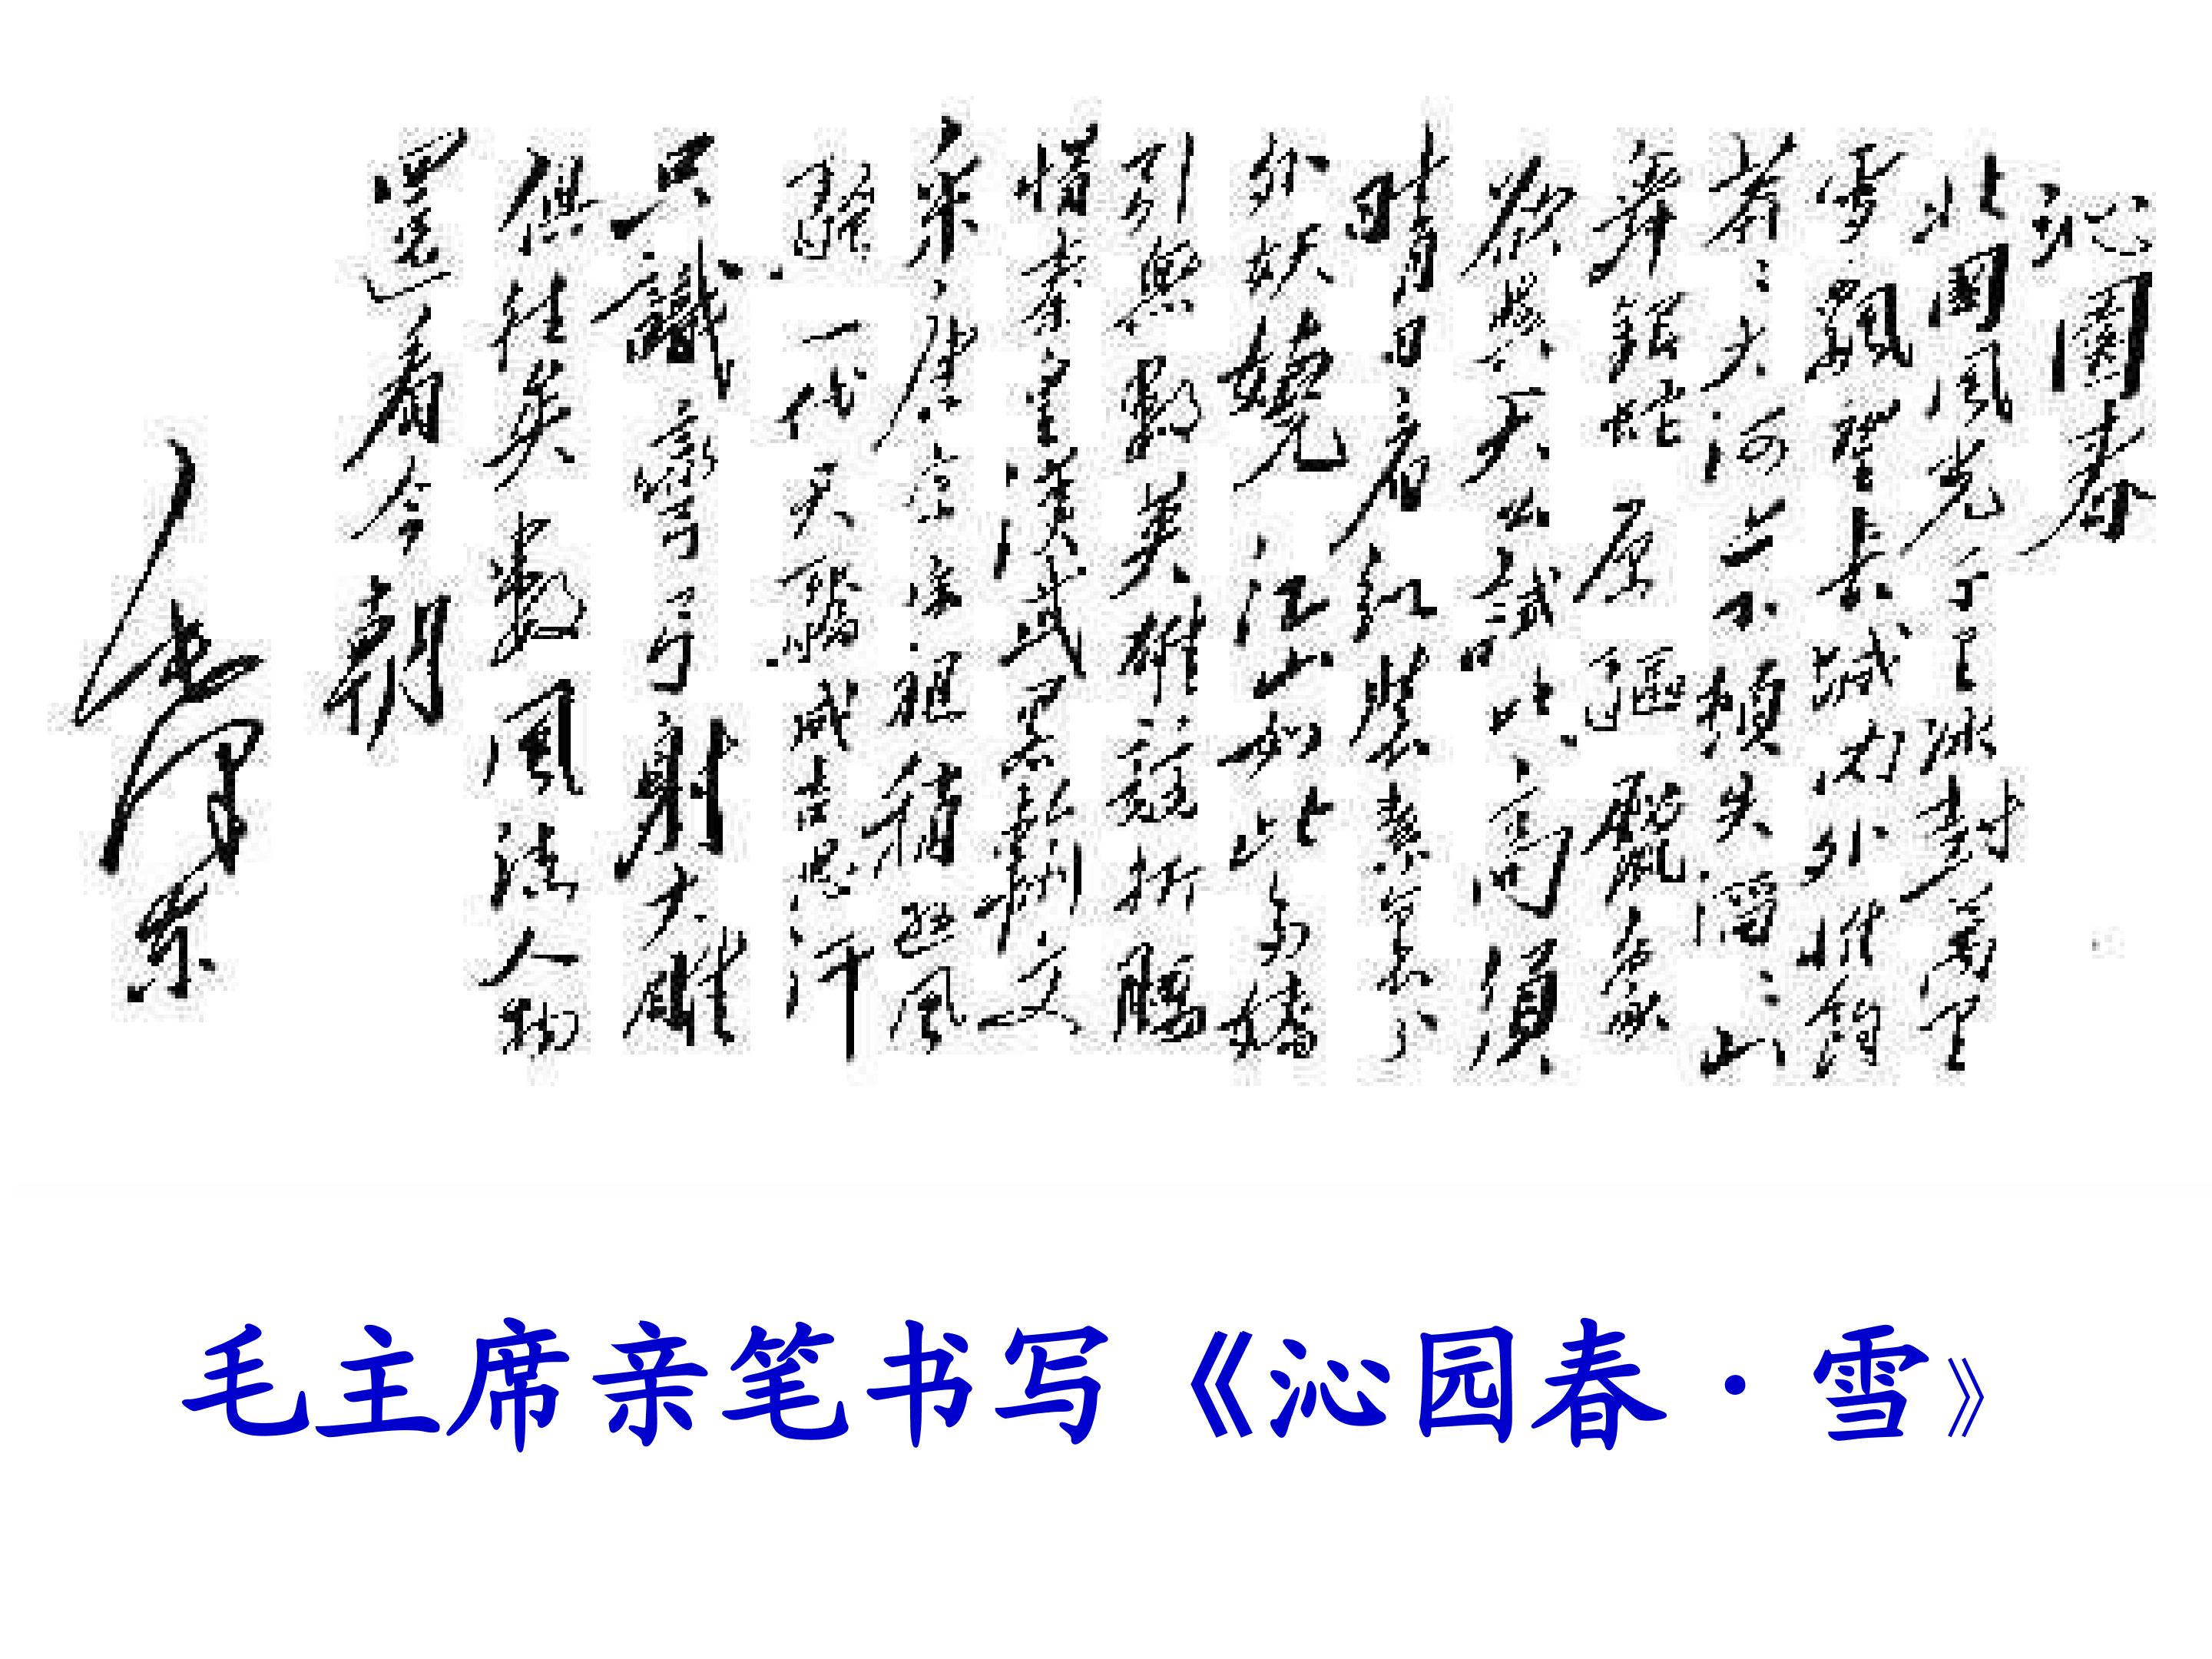 沁園春
北國風光千里冰封萬里
雪飄望長城内外惟餘
莽〻大河上下頓失滔〻山
舞銀蛇原驅臘象
欲與天公試比高須
晴日看紅裝素裹分
外妖嬈江山如此多嬌
引無數英雄競折腰
惜秦皇漢武畧輸文
采唐宗宋祖稍遜風
騷一代天驕成吉思汗
只識彎弓射大雕
俱往矣數風流人物
還看今朝
毛澤東
毛主席亲笔书写《沁园春·雪》